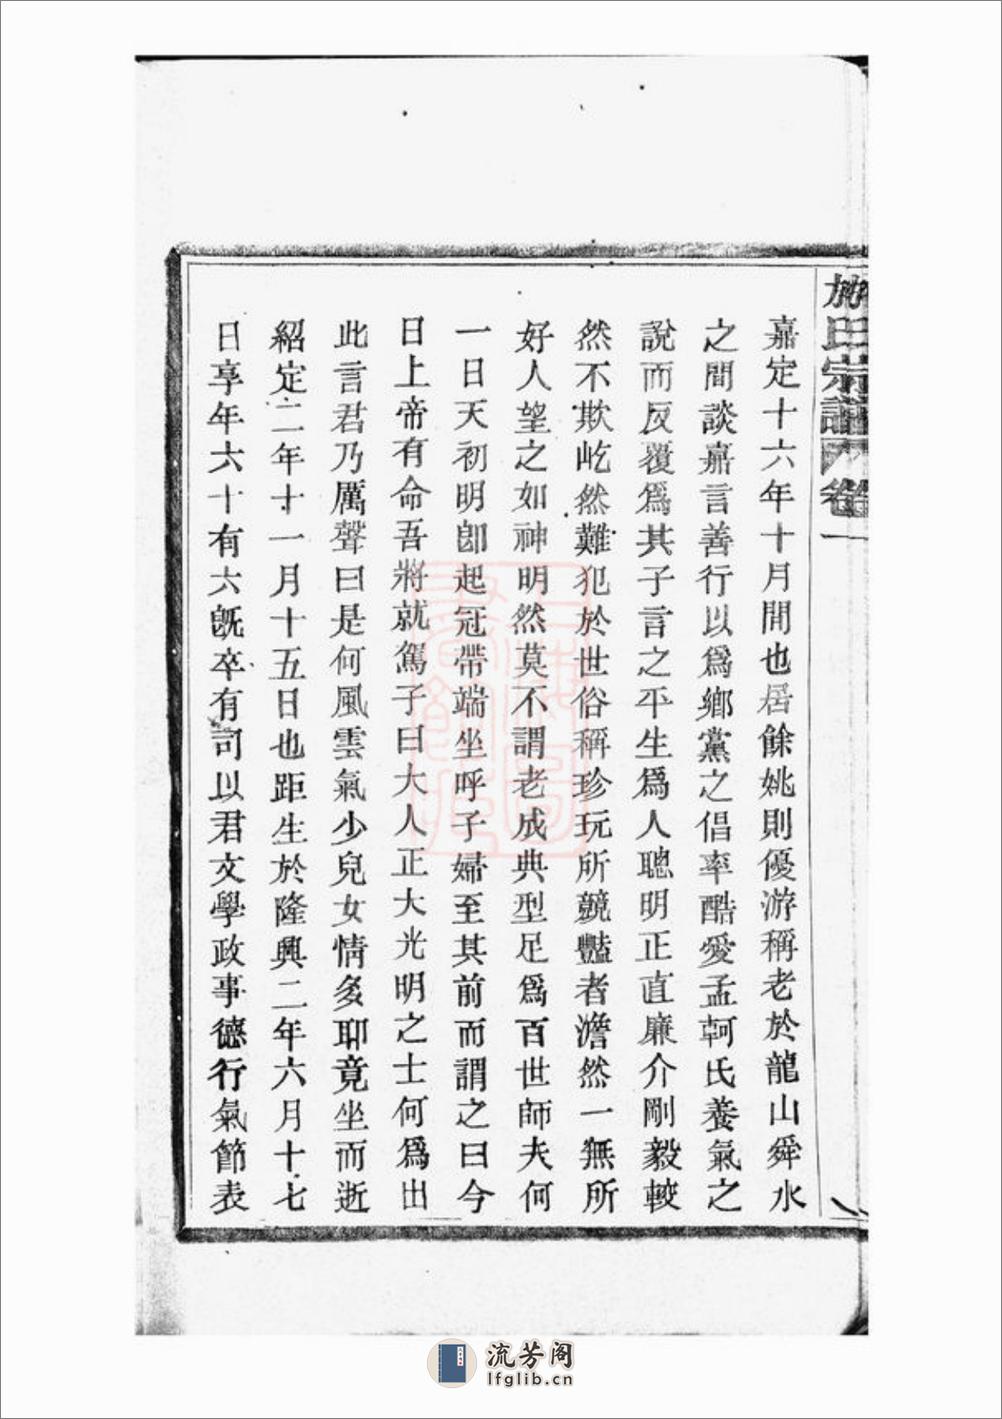 施氏宗譜 卷一
嘉定十六年十月間也居餘姚則優游稱老於龍山舜水
之間談嘉言善行以爲鄉黨之倡率酷愛孟軻氏養氣之
說而反覆爲其子言之平生爲人聰明正直廉介剛毅較
然不欺屹然難犯於世俗稱珍玩所競豔者澹然一無所
好人望之如神明然莫不謂老成典型足爲百世師夫何
一日天初明卽起冠帶端坐呼子婦至其前而謂之曰今
日上帝有命吾將就駕子曰大人正大光明之士何爲出
此言君乃厲聲曰是何風雲氣少兒女情多耶竟坐而逝
紹定二年十一月十五日也距生於隆興二年六月十七
日享年六十有六旣卒有司以君文學政事德行氣節表
流芳阁
lfglib.cn